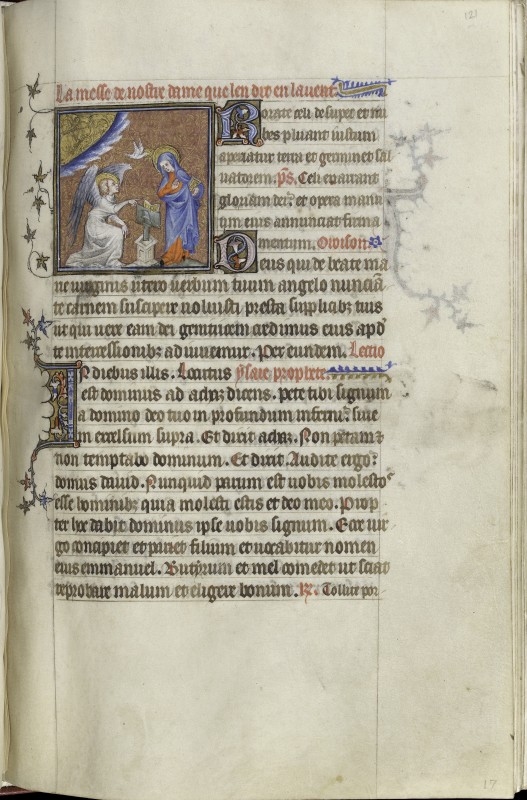 121
La messe de nostre dame que len dit en lauent.
Rorate celi de super et nu
bes pluant iustum
aperiatur terra et germinet sal
uatorem. ps. Celi enarrant
gloriam dei: et opera manu
um eius annunciat firma
mentum. Oroison
Deus qui de beate ma
rie uirginis utero uerbum tuum angelo nuncian
te carnem suscipere uoluisti presta supplicibz tuis
ut qui uere eam dei genitricem credimus eius apd
te intercessionibz adiuuemur. Per eundem. Lectio
In diebus illis. Locutus ysaie prophete
est dominus ad achaz dicens. pete tibi signum
a domino deo tuo in profundum inferni: siue
in excelsum supra. Et dixit achaz. Non petam et
non temptabo dominum. Et dixit. Audite ergo:
domus dauid. Nunquid parum est uobis molestos
esse hominibz quia molesti estis et deo meo. Prop
ter hoc dabit dominus ipse uobis signum. Ecce uir
go concipiet et pariet filium et uocabitur nomen
eius emmanuel. Butyrum et mel comedet ut sciat
reprobare malum et eligere bonum. R. Tollite por
17